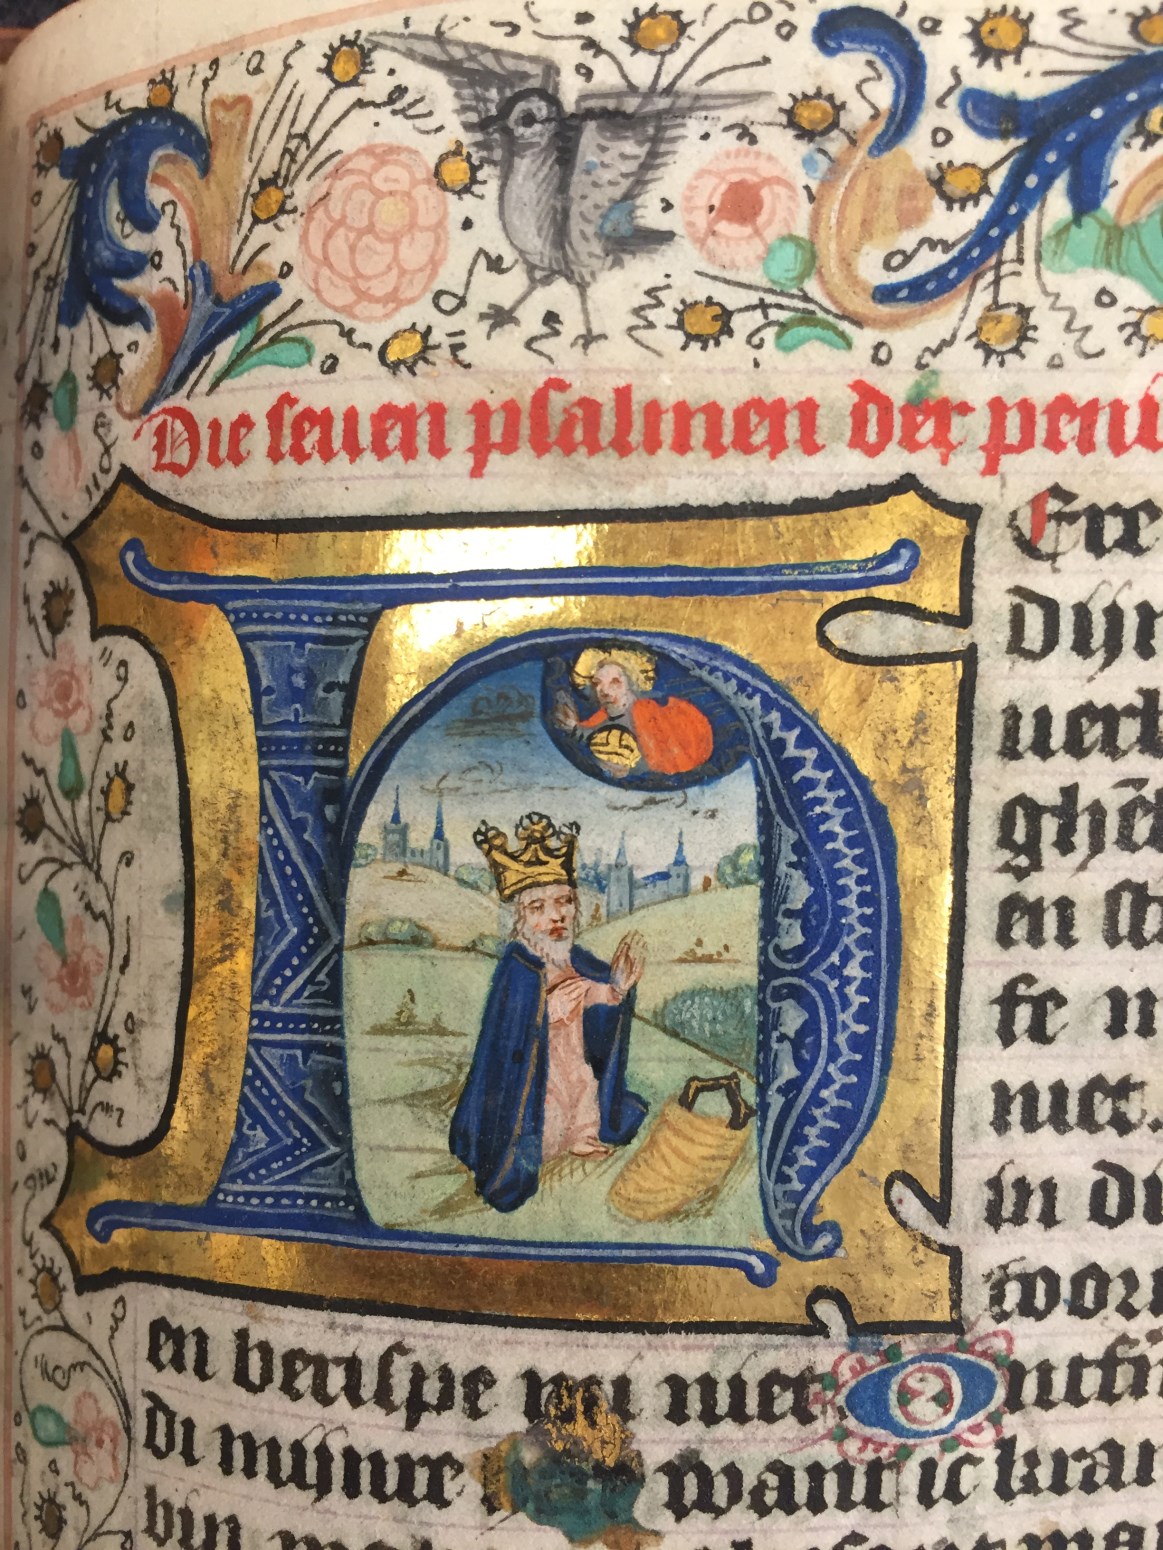 Die seuen psalmen der peni
HEre
dijn
uert
ghē
en
fe n
niet.
in di
wor
en berispe mi niet Ontfā
di mijnre want ic kran
bin